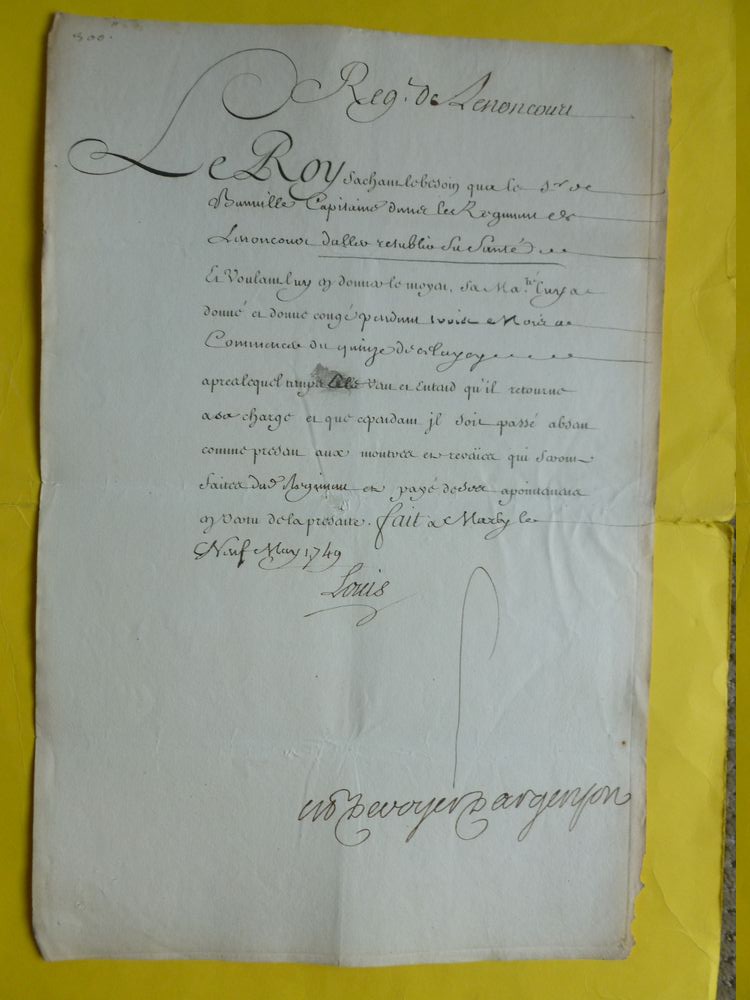 300.
Reg.t De Lenoncourt
Le Roy Sachant le besoin qua le S.r de
Capitaine dans le Regiment de
Lenoncourt d'aller retablir Sa Santé
Et Voulant luy en donner le moyen, Sa Ma.té luy a
donné et donne congé pendant trois Mois a
Commencer du quinze de
apres lequel temps Elle Veut et Entend qu'il retourne
a sa charge et que cependant jl soit passé absent
comme present aux montres et reveües qui Seront
faites dud. Regiment et payé de ses apointemens
en Vertu de la presente. fait a Marly le
Neuf May 1749
Louis
De voyer D'argenson